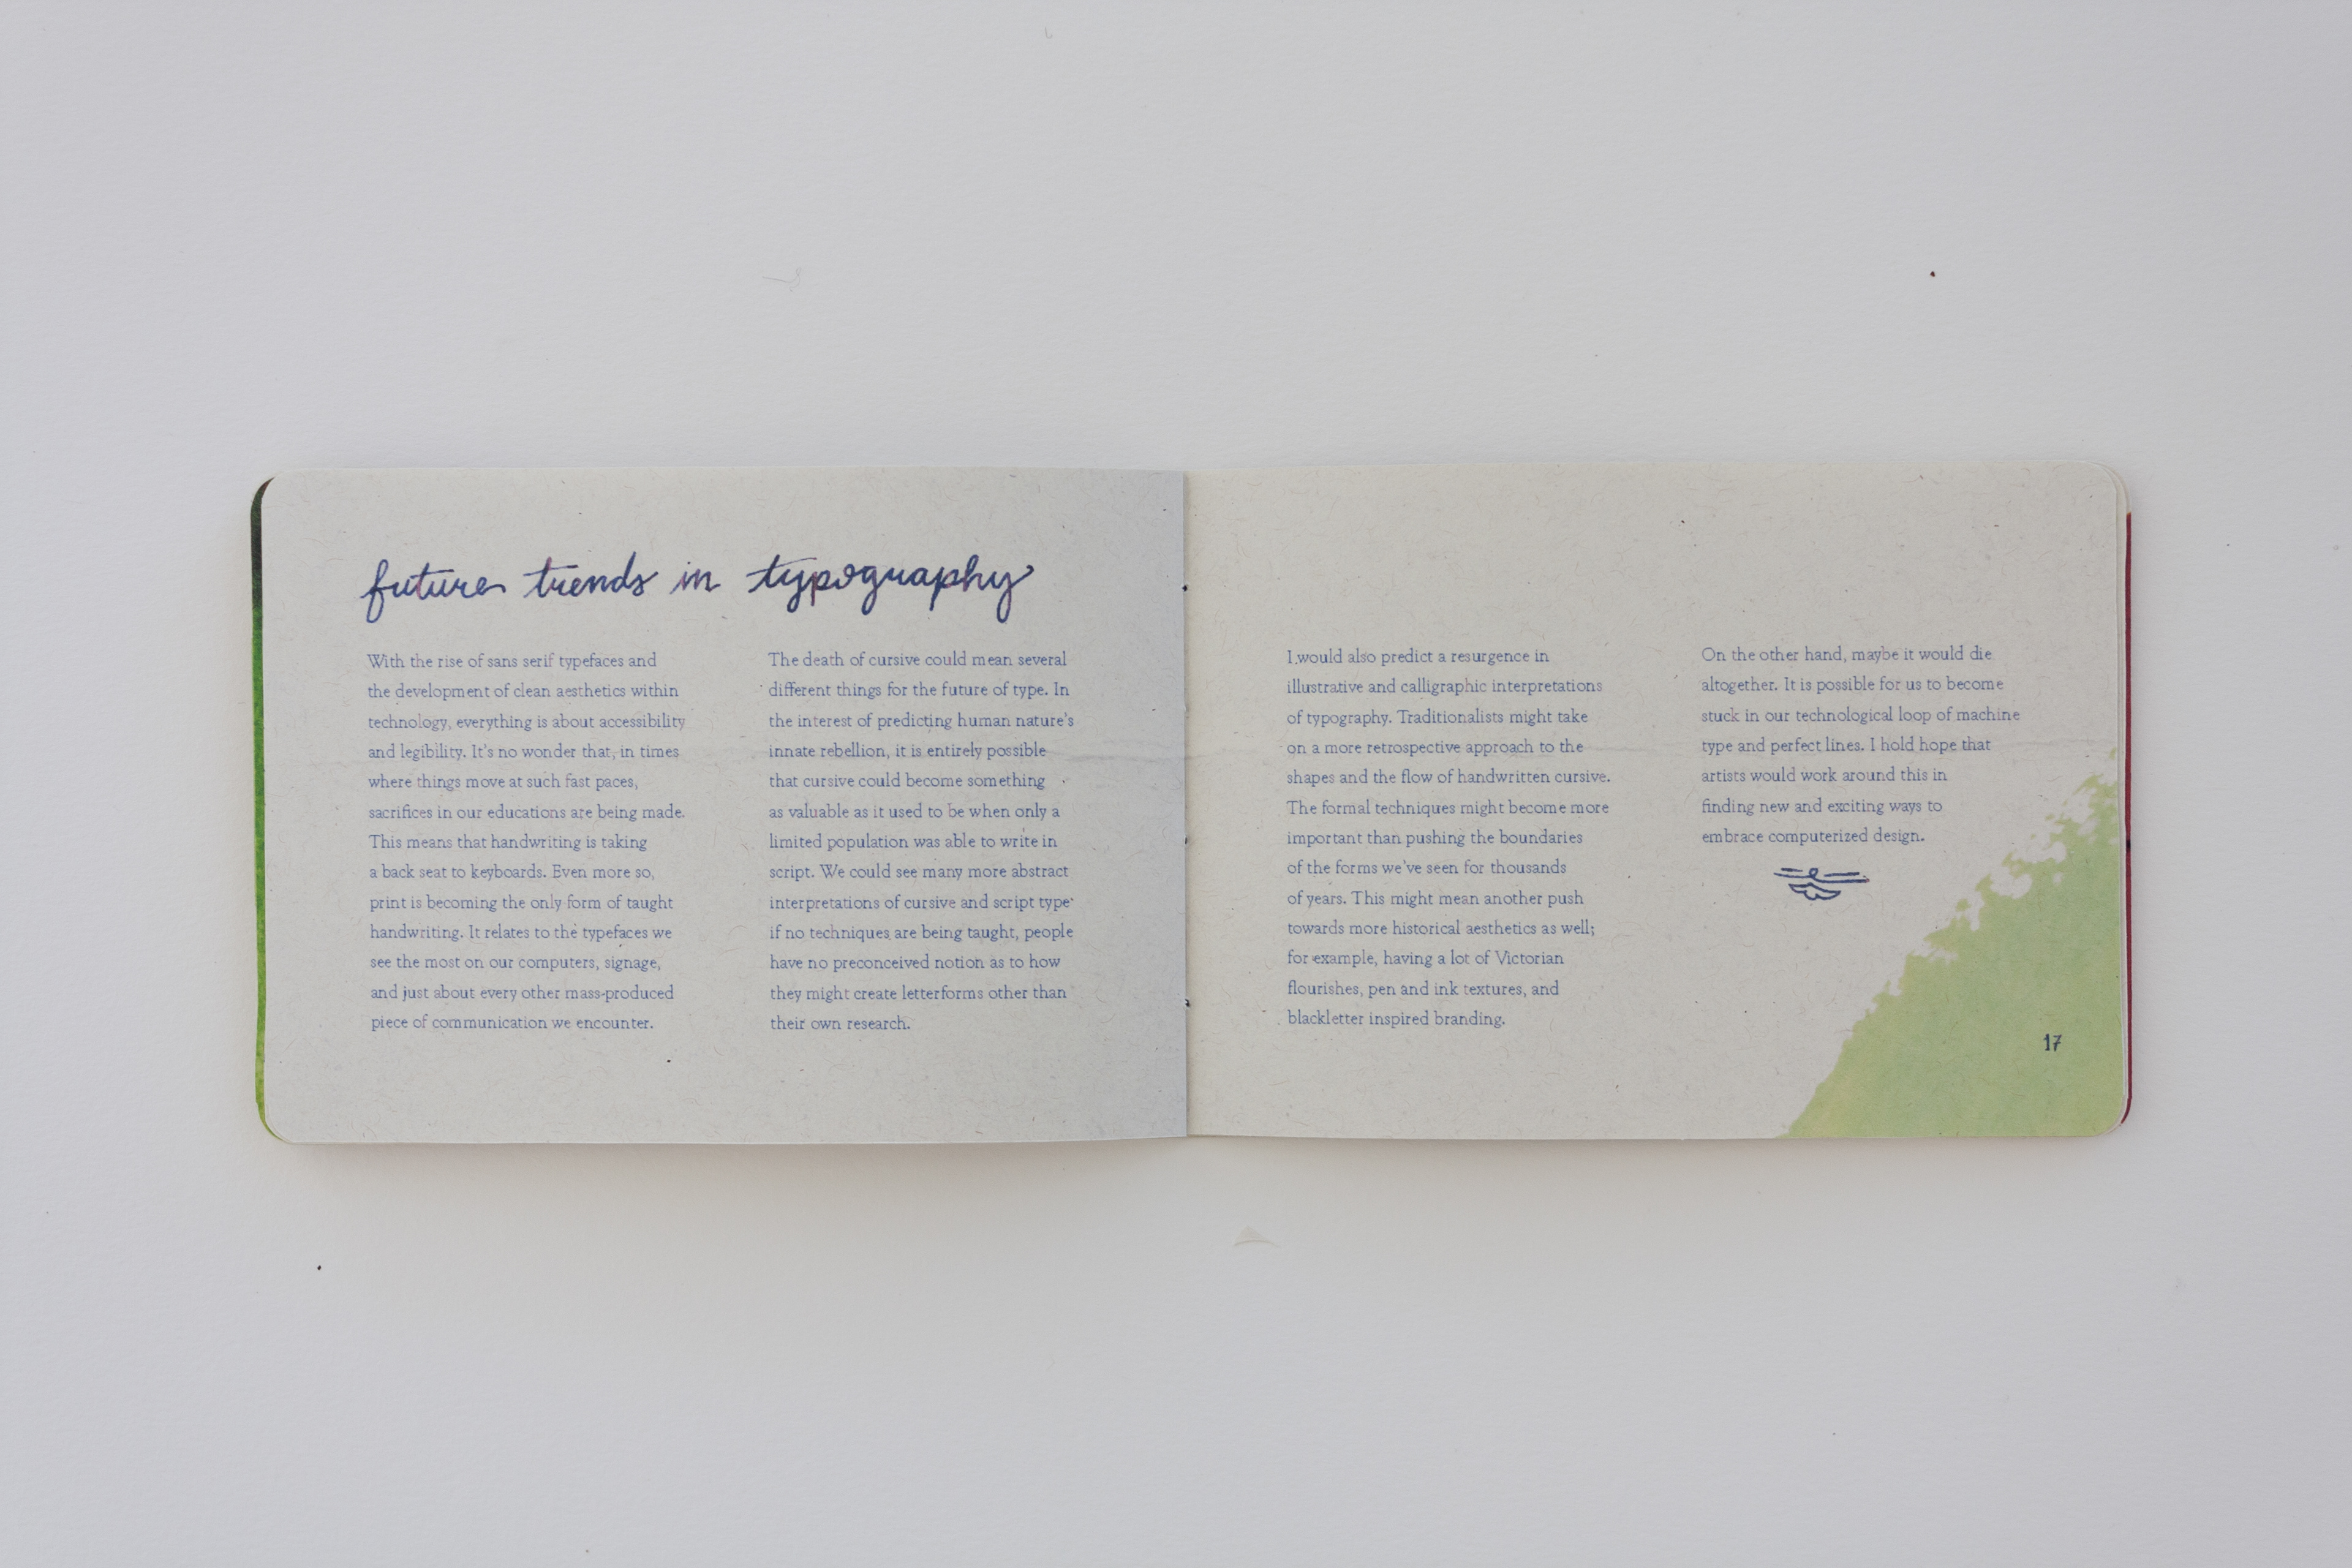 future trends in typography
With the rise of sans serif typefaces and
the development of clean aesthetics within
technology, everything is about accessibility
and legibility. It's no wonder that, in times
where things move at such fast paces,
sacrifices in our educations are being made.
This means that handwriting is taking
a back seat to keyboards. Even more so,
print is becoming the only form of taught
handwriting. It relates to the typefaces we
see the most on our computers, signage,
and just about every other mass-produced
piece of communication we encounter.
The death of cursive could mean several
different things for the future of type. In
the interest of predicting human nature's
innate rebellion, it is entirely possible
that cursive could become something
as valuable as it used to be when only a
limited population was able to write in
script. We could see many more abstract
interpretations of cursive and script type
if no techniques are being taught, people
have no preconceived notion as to how
they might create letterforms other than
their own research.
I would also predict a resurgence in
illustrative and calligraphic interpretations
of typography. Traditionalists might take
on a more retrospective approach to the
shapes and the flow of handwritten cursive.
The formal techniques might become more
important than pushing the boundaries
of the forms we've seen for thousands
of years. This might mean another push
towards more historical aesthetics as well;
for example, having a lot of Victorian
flourishes, pen and ink textures, and
blackletter inspired branding.
On the other hand, maybe it would die
altogether. It is possible for us to become
stuck in our technological loop of machine
type and perfect lines. I hold hope that
artists would work around this in
finding new and exciting ways to
embrace computerized design.
17